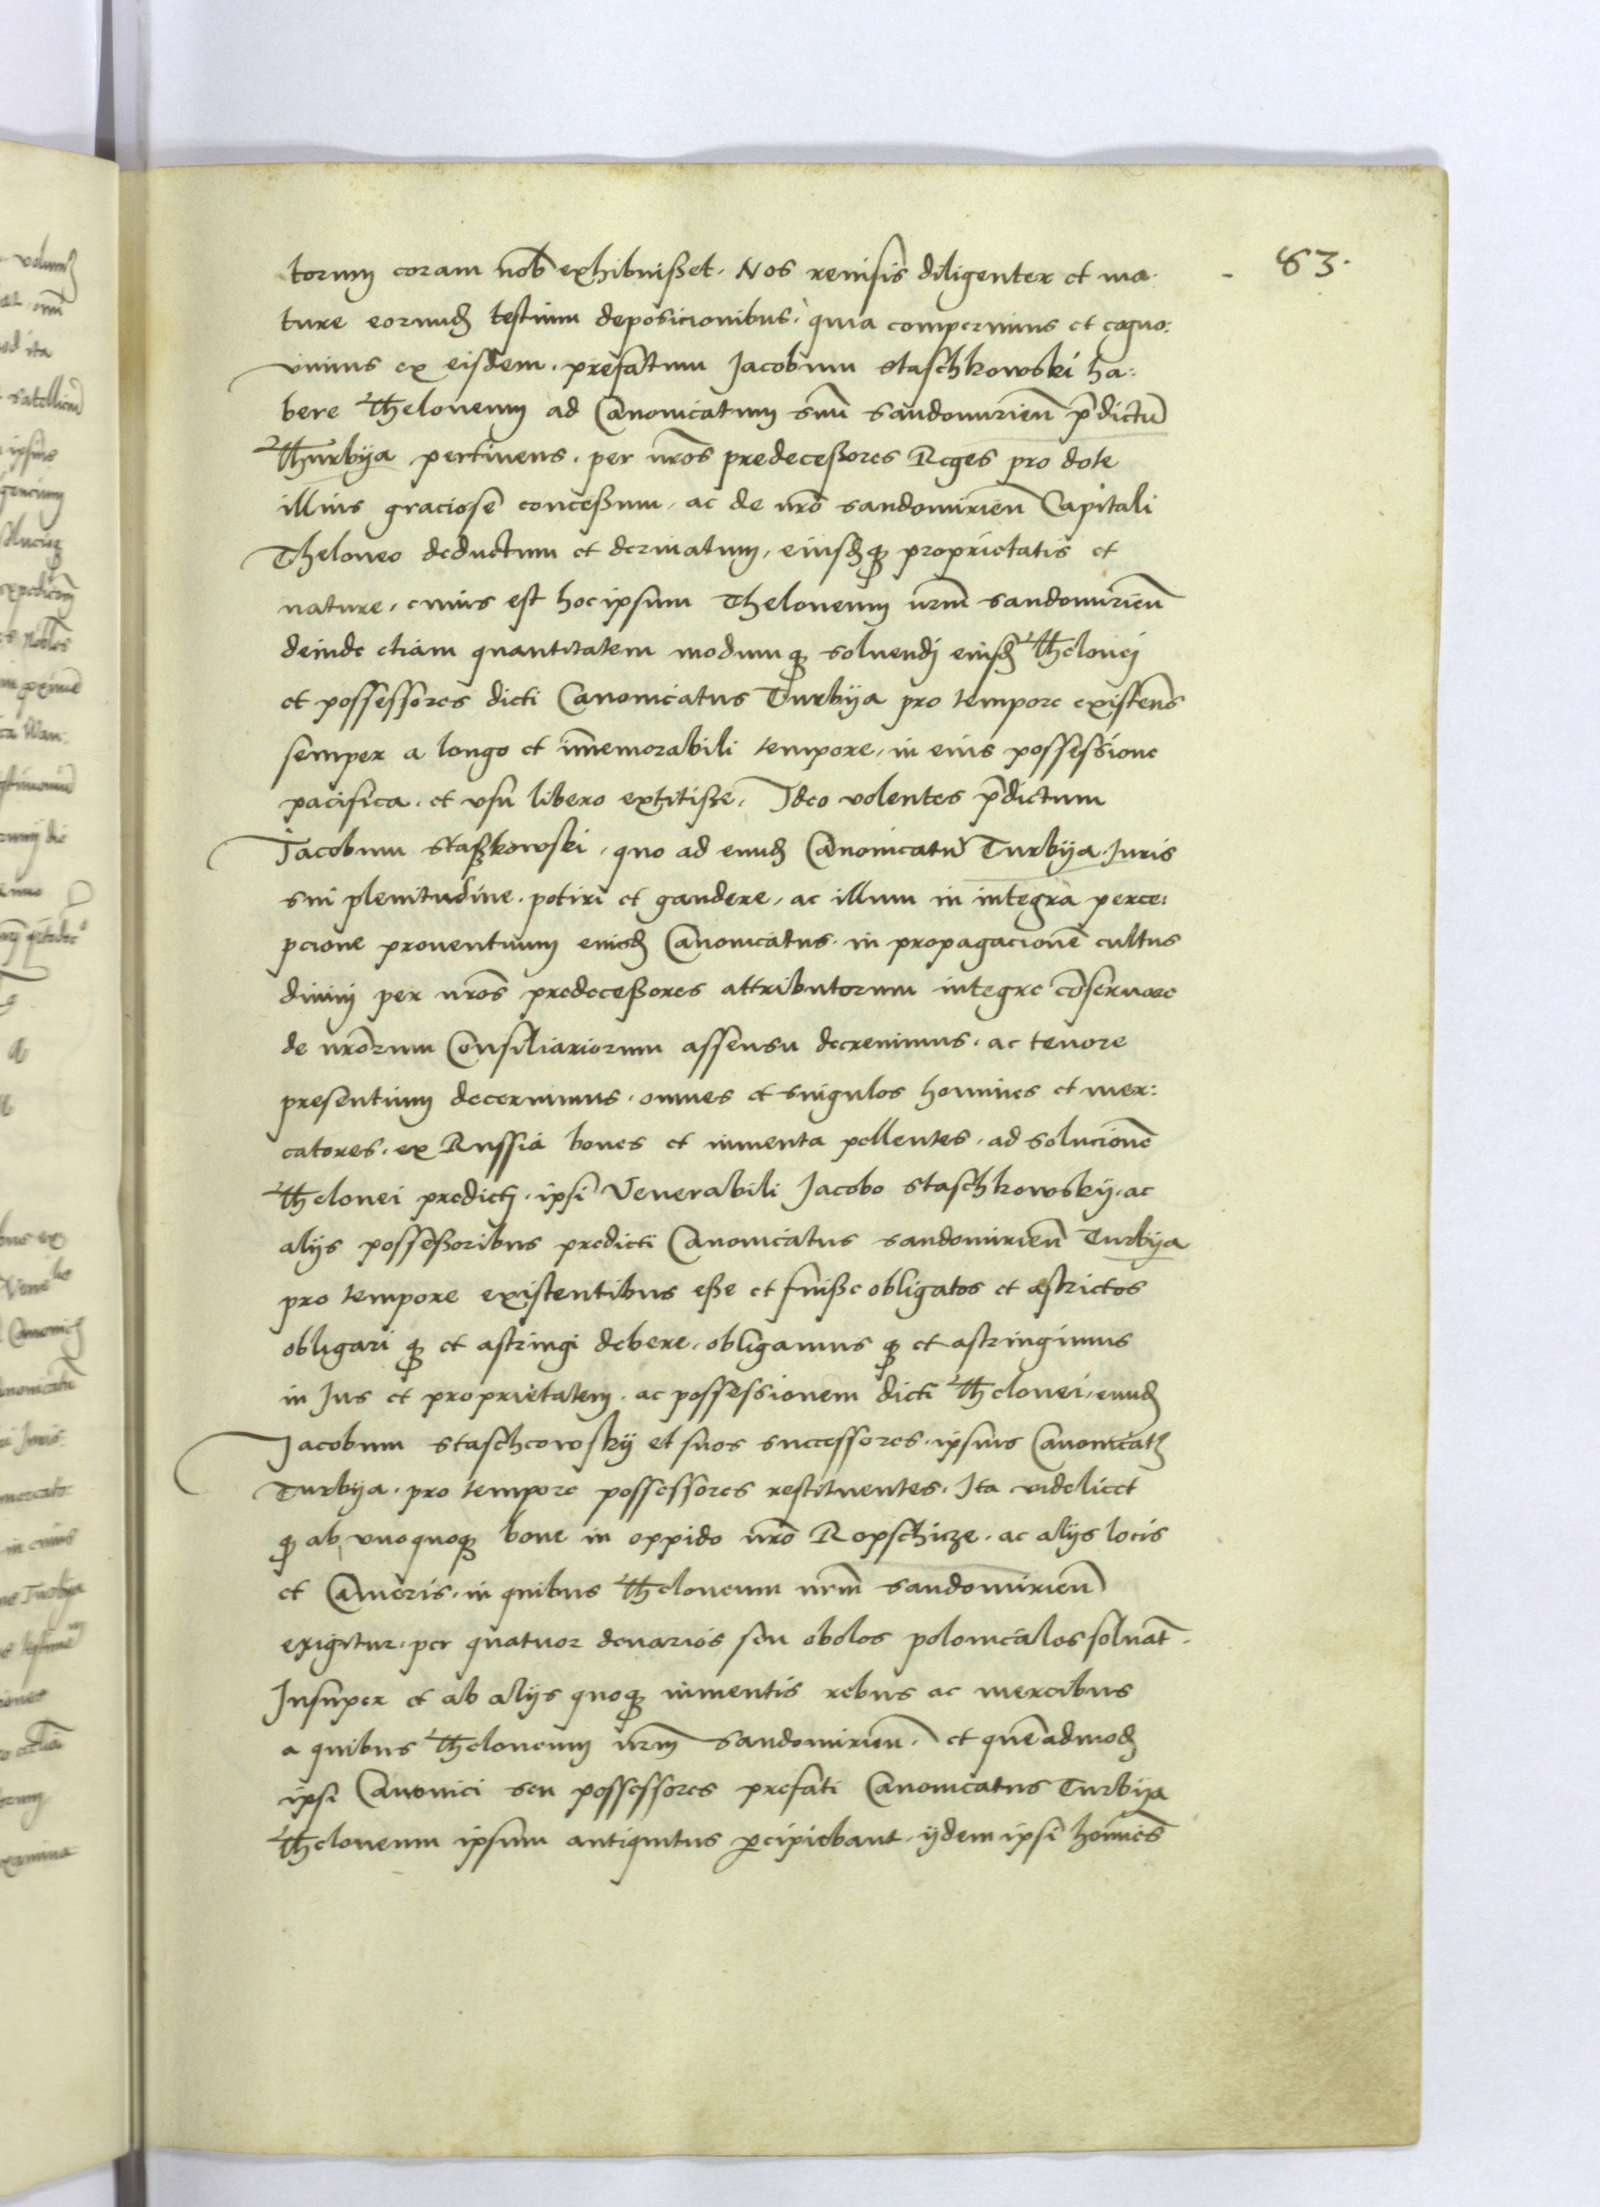 83.
torum coram nob exhibuisset. Nos reuisis diligenter et ma:
ture eorund testium deposicionibus, quia comperimus et cogno:
uimus ex eisdem, prefatum Jacobum Staschkowski ha:
bere Theloneum ad Canonicatum suū Sandomirien p̄dictū
Thurbija pertinens, per nr̄os predecessores Reges pro dote
illius graciose concessum, ac de nr̄o Sandomirien Capitali
Theloneo deductum et deriuatum, eiusdq proprietatis et
nature, cuius est hoc ipsum Theloneum nr̄m Sandomirien
deinde etiam quantitatem modumq soluendi eiusd Thelonei
et possessores dicti Canonicatus Turbija pro tempore existen̄s
semper a longo et im̄emorabili tempore, in eius possessione
pacifica, et vsu libero extitisse, Ideo volentes p̄dictum
Jacobum Staszkowski, quo ad eund Canonicatū Turbija Juris
sui plenitudine, potiri et gaudere, ac illum in integra perce:
pcione prouentuum eiusd Canonicatus, in propagacionē cultus
diuini per nr̄os predecessores attributorum integre cōseruare
de nr̄orum Consiliariorum assensu decreuimus, ac tenore
presentium decernimus, omnes et singulos homines et mer:
catores, ex Russia boues et iumenta pellentes, ad solucionē
Thelonei predicti, ipsi Venerabili Jacobo Staschkowskij, ac
alijs possessoribus predicti Canonicatus Sandomirien Turbija
pro tempore existentibus esse et fuisse obligatos et astrictos
obligari q et astringi debere, obligamus q et astringimus
in Jus et proprietatem, ac possessionem dicti Thelonei, eund
Jacobum Staschcowskij et suos successores, ipsius Canonicat9
Turbija, pro tempore possessores restituentes, Ita videlicet
q ab vnoquoq boue in oppido nr̄o Ropschicze, ac alijs locis
et Cameris, in quibus Theloneum nr̄m Sandomirien
exigitur, per quatuor denarios seu obolos polonicales soluāt.
Insuper et ab alijs quoq iumentis rebus ac mercibus
a quibus Theloneum nr̄m Sandomirien, et quēadmod
ipsi Canonici seu possessores prefati Canonicatus Turbija
Theloneum ipsum antiquitus p̄cipiebant, ijdem ipsi hom̄ies